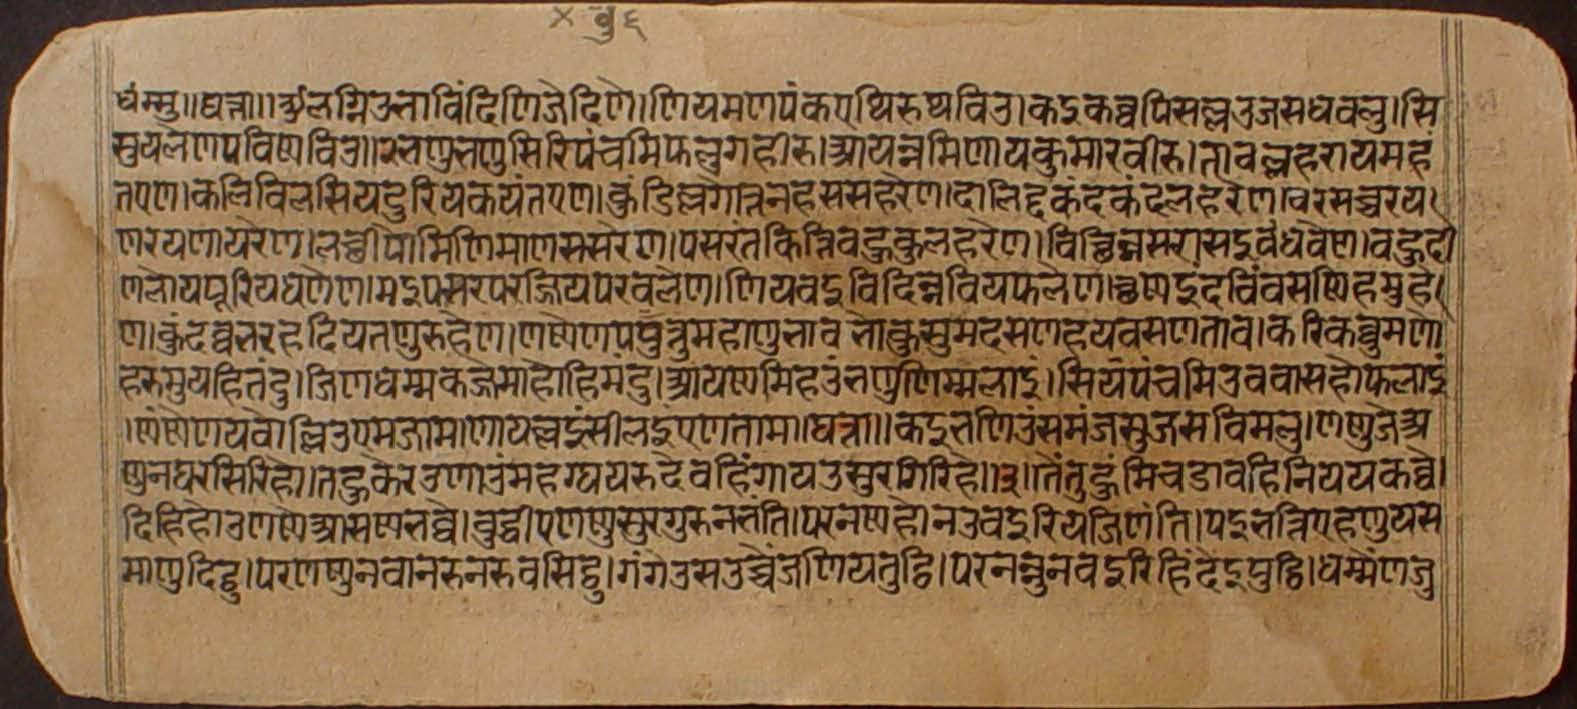 धंम्मु॥घत्ता॥
णियमणपंकए
सुयलेणपविष्णविउ॥२
सिरिपंचमिफलुगहीरु।आयन्नमिणायकुमारवीरु।तावल्लहरायमहं
तएण।कलिविलसियदुरियकयंतएण।कुंडिल्लगोत्तनहससहरेण।दालिद्दकंदकंदलहरेण।वरसच्चरय
णरयणायरेण।लच्छीपोमिणिमाणससरेण।पसरंतकित्तिवहुकुलहरेण।विच्छिन्नसरासइबंधवेण।वहुदी
णलोयपूरियधणेण।मइपसरपरज्जियपरवलेण।णियवइविदिन्नवियफलेण।छणइंदविंवसण्णिहमुहे
ण।कुंदव्वभरहदियतणुरुहेण।णण्णेणपवुत्तुमहाणुभाव भोकुसुमदसणहयवसणताव।करिकव्वुमणो
हरुमुयहितंदु।जिणधम्मकज्जेमाहोहिमंदु।आयण्णमिहउंभणुणिम्मलाइं।सियपंचमिउववासहोफलाइं
।णंण्णेणयवोल्लिउएमजाम।णायल्लइंसीलइंएणताम॥घत्ता॥कइभणिउंसमंजसुजसविमलु।णण्णुजेअ
ण्णुनघरसिरिहे।तहुकेरउणाउंमहग्घयरुदेवहिंगायउसुरगिरिहे॥३॥तंतुहुंमिचडावहिनिययकव्वे।
दिहिहोउणण्णेआसण्णभव्वे।वुद्धीएणण्णुसुरगुरुनभंति।परनण्णहोनउवइरियजिणंति।पइभत्तिएहणुयस
माणुदिट्ठु।परणण्णुनवानरुनरुवसिट्ठु।गंगेउसउच्चेंजणियतुट्ठि।परनन्नुनवइरिहिंदेइपुट्ठि।धम्मेणजु